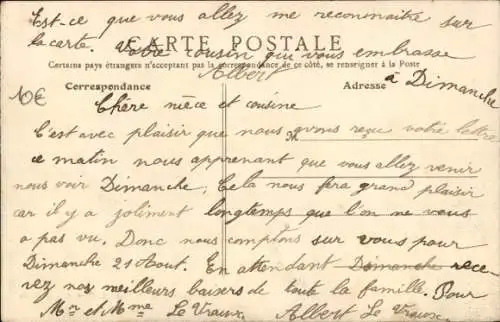 Est-ce que vous allez me reconnaitre sur
la carte. Votre cousin qui vous embrasse
CARTE POSTALE
Certains pays étrangers n'acceptant pas la correspondance de ce côté, se renseigner à la Poste
Albert
à Dimanche
10€
Correspondance
Adresse
Chère nièce et cousine
C'est avec plaisir que nous avons reçu votre lettre
M
ce matin nous apprenant que vous allez venir
nous voir Dimanche, Cela nous fera grand plaisir
car il y a joliment longtemps que l'on ne vous
a pas vu. Donc nous comptons sur vous pour
Dimanche 21 Aout. En attendant Dimanche rece
vez nos meilleurs baisers de toute la famille. Pour
Mr et Mme Le Vraux. Albert Le Vraux.